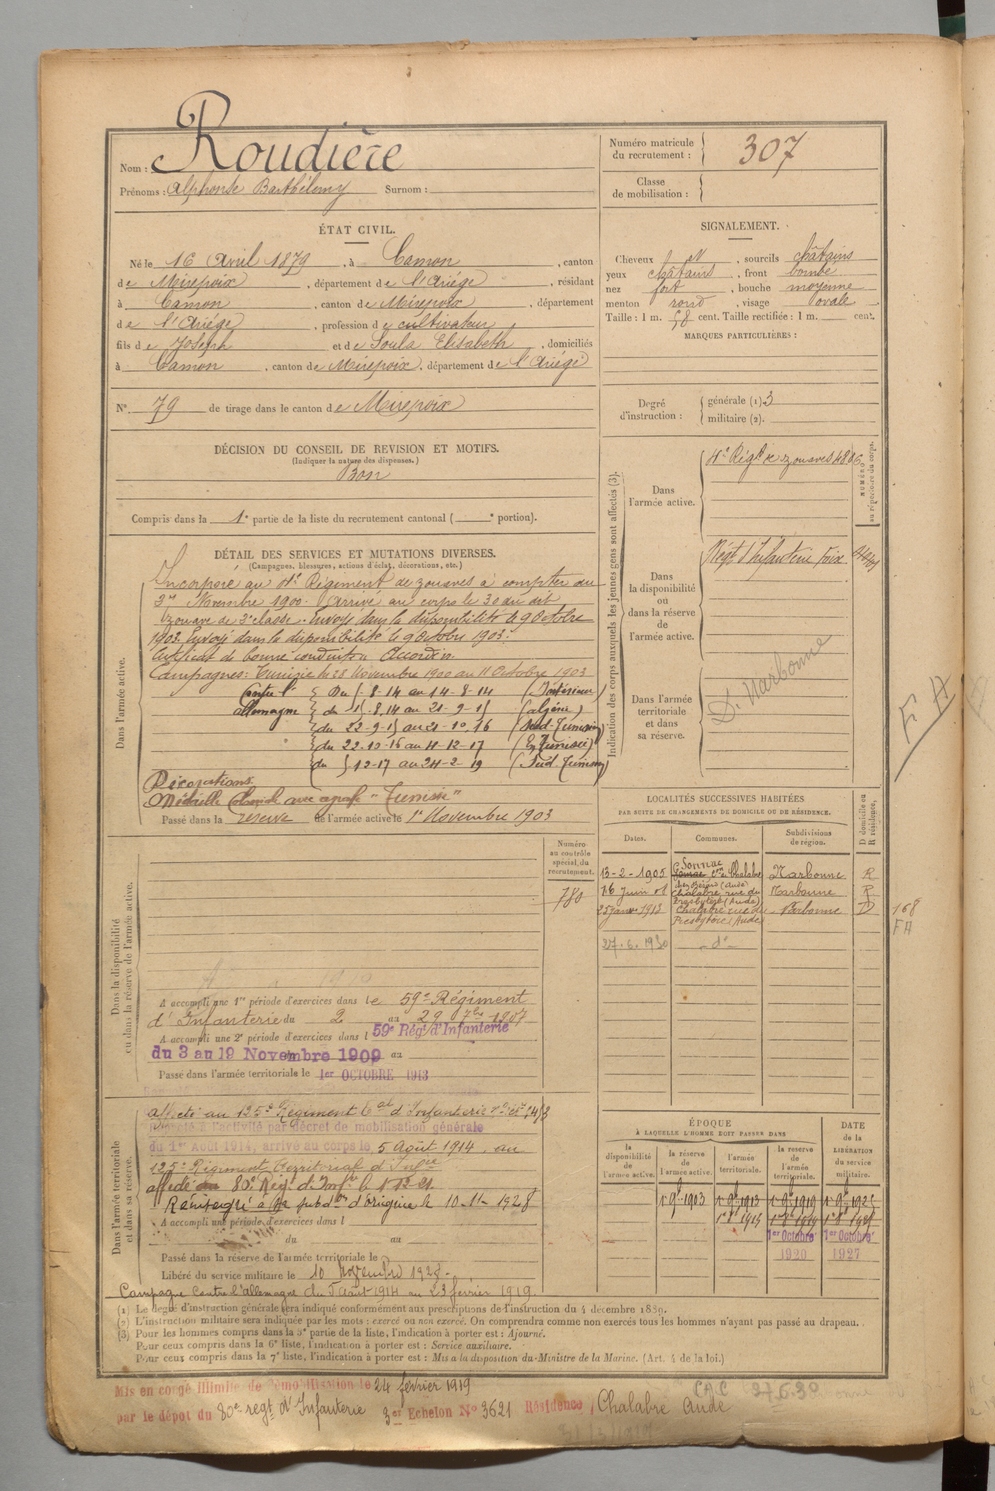 Nom : Roudière
Prénoms : Alphonse Barthélemy Surnom :
Numéro matricule du recrutement : 307
Classe de mobilisation :
ÉTAT CIVIL.
Né le 16 Avril 1879, à Camon, canton
de Mirepoix, département de l'Ariège, résidant
à Camon, canton de Mirepoix, département
de l'Ariège, profession de cultivateur
fils de Joseph et de Soula Elisabeth, domiciliés
à Camon, canton de Mirepoix, département de l'Ariège
N° 79 de tirage dans le canton de Mirepoix
SIGNALEMENT.
Cheveux N, sourcils châtains
yeux châtains, front bombé
nez fort, bouche moyenne
menton rond, visage ovale
Taille : 1 m. 58 cent. Taille rectifiée : 1 m. cent.
MARQUES PARTICULIÈRES :
Degré d'instruction : générale (1) 3
militaire (2).
DÉCISION DU CONSEIL DE REVISION ET MOTIFS.
(Indiquer la nature des dispenses.)
Bon
Compris dans la 1e partie de la liste du recrutement cantonal ( e portion).
Indication des corps auxquels les jeunes gens sont affectés (3).
NUMÉRO au répertoire du corps.
Dans l'armée active.
4e Régt de zouaves
Dans la disponibilité ou dans la réserve de l'armée active.
Régt d'Infanterie Foix
Dans l'armée territoriale et dans sa réserve.
D. Narbonne
FA
DÉTAIL DES SERVICES ET MUTATIONS DIVERSES.
(Campagnes, blessures, actions d'éclat, décorations, etc.)
Dans l'armée active.
Incorporé au 4e Régiment de zouaves à compter du
Novembre 1900. Arrivé au corps le 30 au dit
zouave de 2e classe. Envoyé dans la disponibilité le 9 Octobre
1903. Envoyé dans la disponibilité le 9 Octobre 1903.
Certificat de bonne conduite Accordé.
Campagnes : Tunisie le 28 Novembre 1900 au 11 Octobre 1903
Contre l' Allemagne
du 5-8-14 au 14-8-14 (Intérieur)
du 15-8-14 au 21-9-15 (Algérie)
du 22-9-15 au 21-10-16 (Sud-Tunisien)
du 22-10-16 au 4-12-17 (En Tunisie)
du 5-12-17 au 24-2-19 (Sud. Tunisien)
Décorations
Médaille Coloniale avec agrafe "Tunisie"
Passé dans la réserve de l'armée active le 1er Novembre 1903
LOCALITÉS SUCCESSIVES HABITÉES
PAR SUITE DE CHANGEMENTS DE DOMICILE OU DE RÉSIDENCE.
Dates. Communes. Subdivisions de région. D domicile ou R résidence.
13-2-1905 Sonnac Con de Chalabre Narbonne R
16 Juin Chalabre rue du Presbytère (Aude) Narbonne R
25 janv 1913 Chalabre rue du Presbytère (Aude) Narbonne D
27-6-1930 -d°-
168
FA
Numéro au contrôle spécial du recrutement.
780
Dans la disponibilité ou dans la réserve de l'armée active.
A accompli une 1re période d'exercices dans le 59e Régiment
d'Infanterie du 2 au 29 7bre 1907
A accompli une 2e période d'exercices dans l 59e Régt d'Infanterie
du 3 au 19 Novembre 1909 au
Passé dans l'armée territoriale le 1er OCTOBRE 1913
Dans l'armée territoriale et dans sa réserve.
Affecté au 125e Régiment tal d'Infanterie
Rappelé à l'activité par décret de mobilisation générale
du 1er Août 1914, arrivé au corps le 5 Août 1914, au
125e Régiment Territorial d'Infrie
affecté au 80e Rég. d'Infie
Réintégré à sa subdon d'origine le 10-11-1928
A accompli une période d'exercices dans l
du au
Passé dans la réserve de l'armée territoriale le
Libéré du service militaire le 10 Novembre 1928.
Campagne contre l'Allemagne du 5 Août 1914 au 23 février 1919
ÉPOQUE
A LAQUELLE L'HOMME DOIT PASSER DANS
la disponibilité de l'armée active. la réserve de l'armée active. l'armée territoriale. la réserve de l'armée territoriale.
DATE de la LIBÉRATION du service militaire.
1er 9bre 1903 1er 9bre 1913 1er 9bre 1919 1er 9bre 1925
1er Octobre 1920
1er Octobre 1927
(1) Le degré d'instruction générale sera indiqué conformément aux prescriptions de l'instruction du 4 décembre 1889.
(2) L'instruction militaire sera indiquée par les mots : exercé ou non exercé. On comprendra comme non exercés tous les hommes n'ayant pas passé au drapeau.
(3) Pour les hommes compris dans la 5e partie de la liste, l'indication à porter est : Ajourné.
Pour ceux compris dans la 6e liste, l'indication à porter est : Service auxiliaire.
Pour ceux compris dans la 7e liste, l'indication à porter est : Mis à la disposition du Ministre de la Marine. (Art. 4 de la loi.)
Mis en congé illimité de démobilisation le 24 février 1919
par le dépôt du 80e régt d'Infanterie 3er Echelon N° 3621 Résidence, Chalabre Aude
CAC 27.6.30